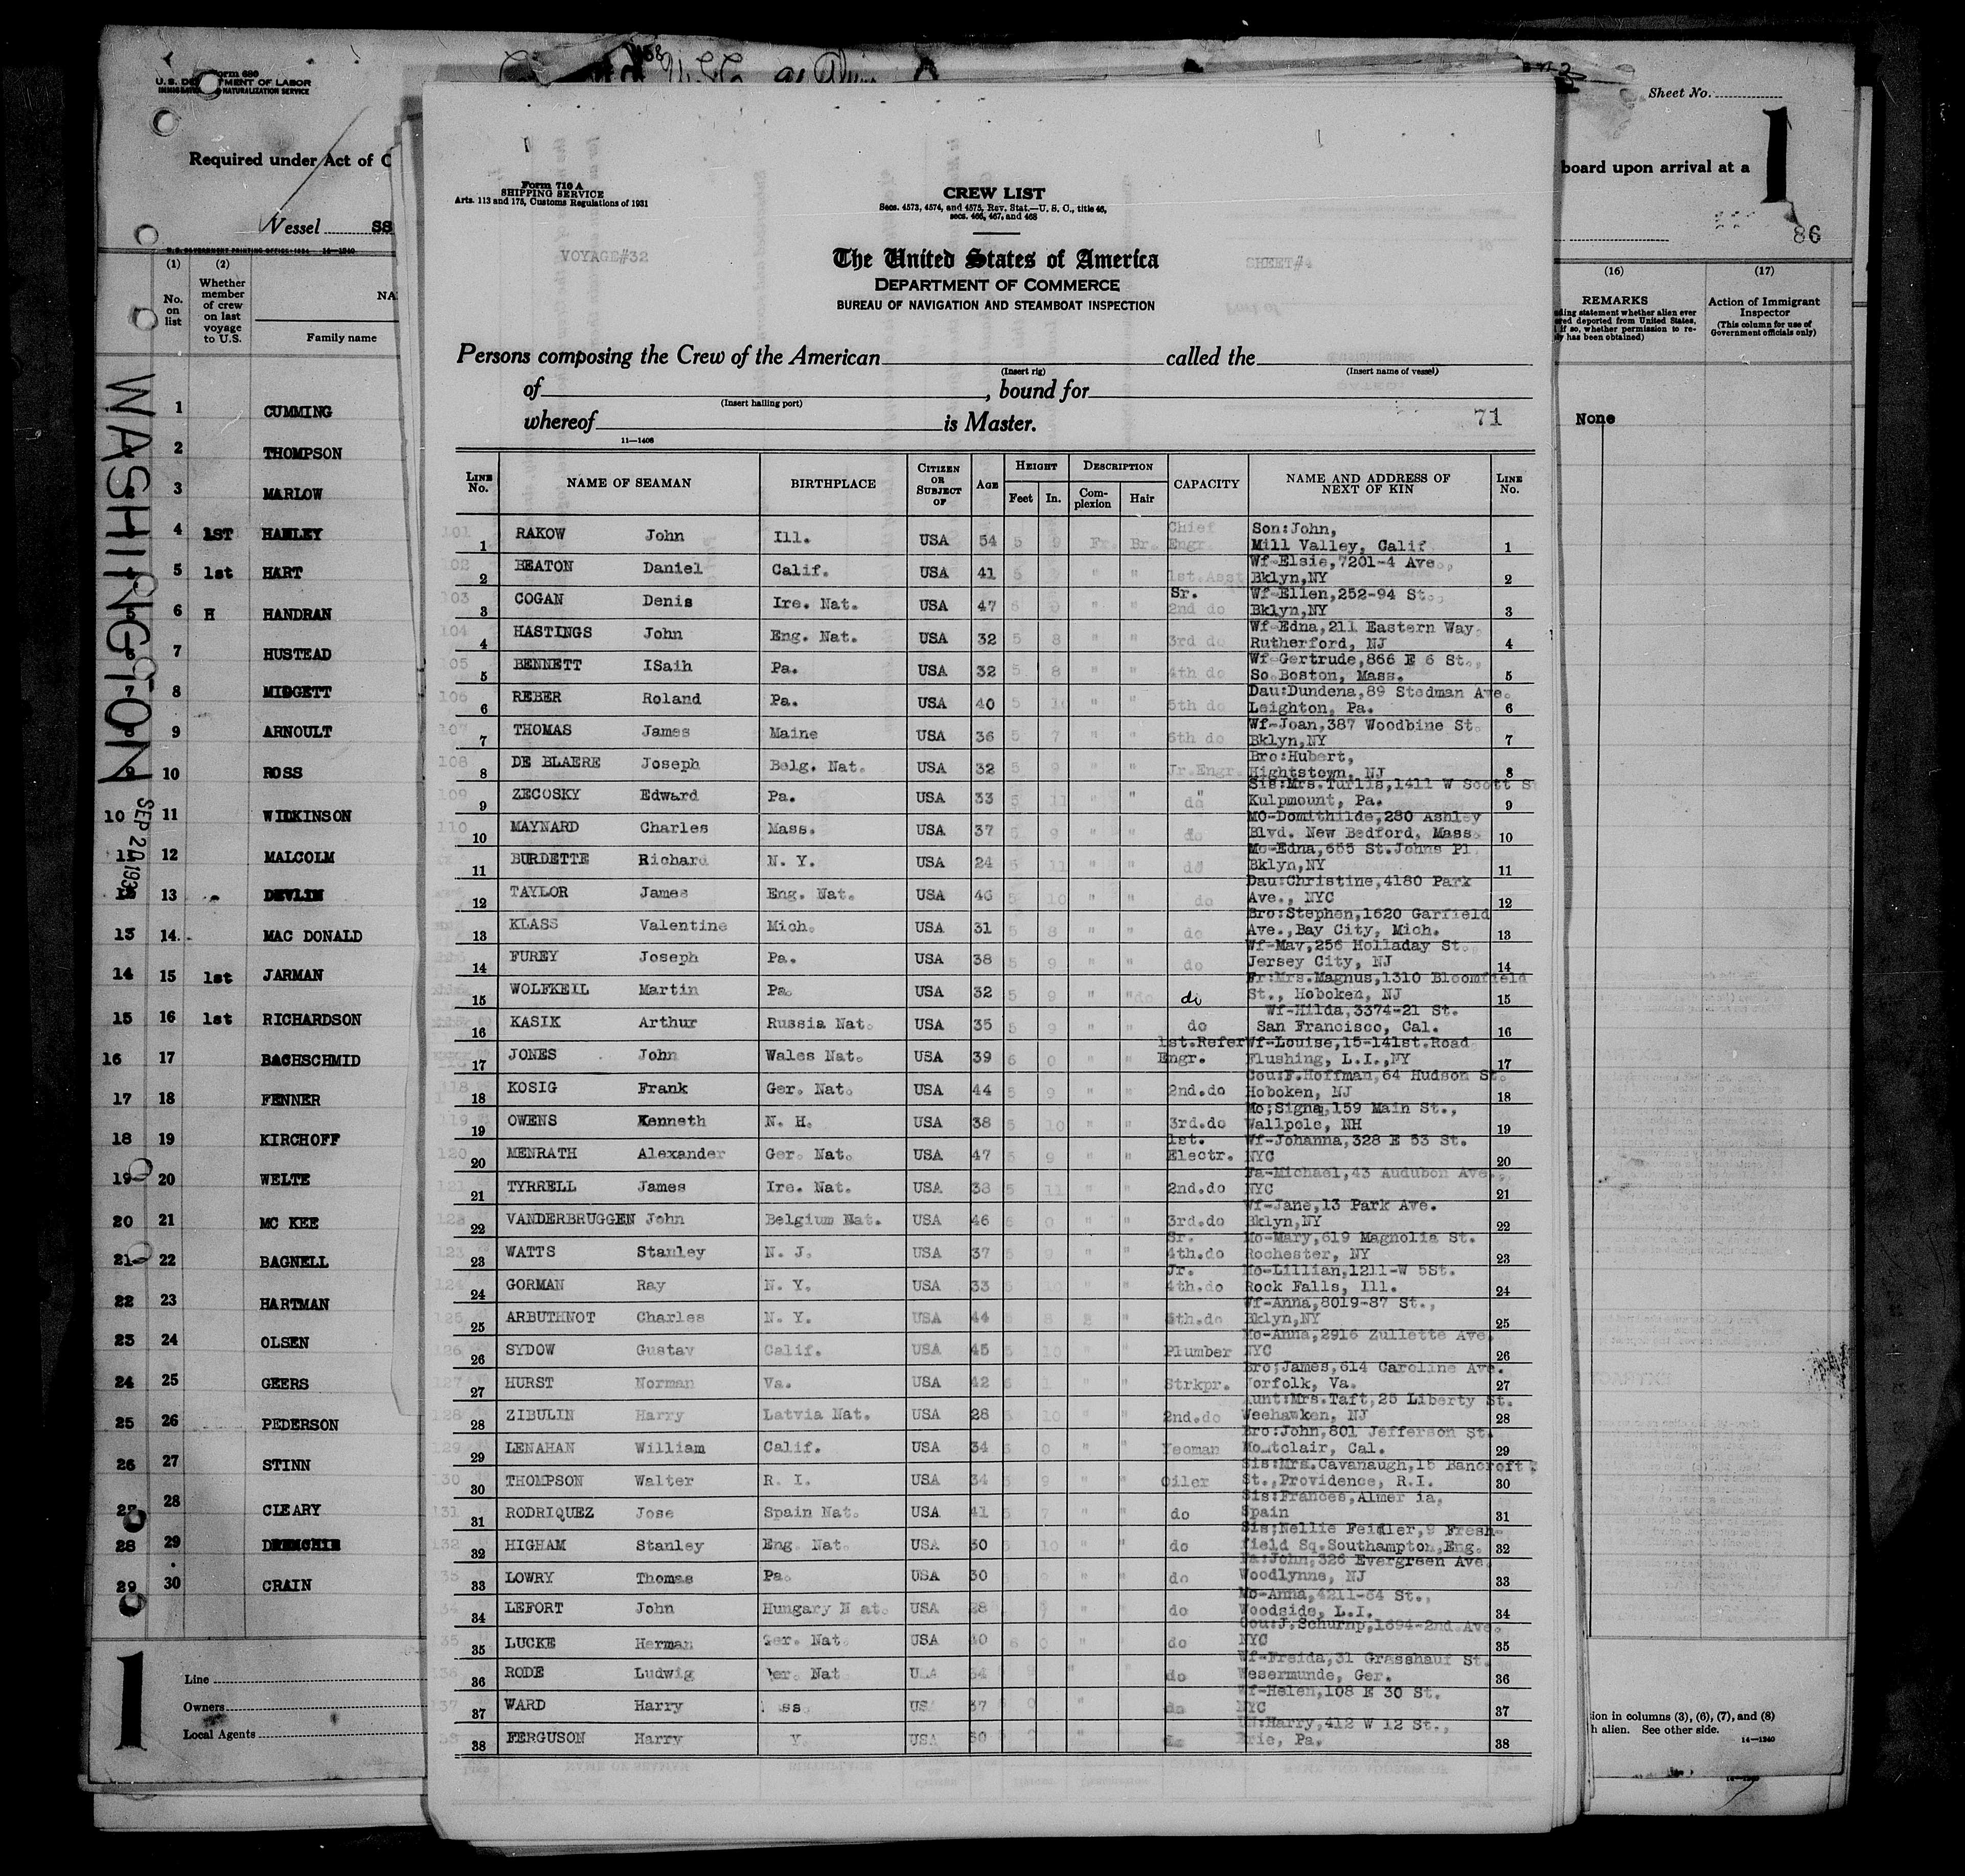 Form 680
U. S. DE TMENT OF LABOR
IMMIGRA NATURALIZATION SERVICE
Required under Act of C
Vessel SS
U. S. GOVERNMENT PRINTING OFFICE: 1934 14—1240
(1) (2)
No. on list
Whether member of crew on last voyage to U.S.
NA
Family name
WASHINGTON
SEP 20 193
1 CUMMING
2 THOMPSON
3 MARLOW
4 1ST HANLEY
5 1st HART
5 6 H HANDRAN
6 7 HUSTEAD
7 8 MIDGETT
9 ARNOULT
9 10 ROSS
10 11 WILKINSON
11 12 MALCOLM
13 DEVLIN
13 14 MAC DONALD
14 15 1st JARMAN
15 16 1st RICHARDSON
16 17 BACHSCHMID
17 18 FENNER
18 19 KIRCHOFF
19 20 WELTE
20 21 MC KEE
21 22 BAGNELL
22 23 HARTMAN
23 24 OLSEN
24 25 GEERS
25 26 PEDERSON
26 27 STINN
27 28 CLEARY
28 29
29 30 CRAIN
1
Line
Owners
Local Agents
Form 710 A
SHIPPING SERVICE
Arts. 113 and 175, Customs Regulations of 1931
CREW LIST
Secs. 4573, 4574, and 4575, Rev. Stat.—U. S. C., title 46,
secs. 466, 467, and 468
VOYAGE#32
The United States of America
SHEET#4
DEPARTMENT OF COMMERCE
BUREAU OF NAVIGATION AND STEAMBOAT INSPECTION
Persons composing the Crew of the American called the
(Insert rig) (Insert name of vessel)
of , bound for
(Insert hailing port)
whereof is Master. 71
11—1406
LINE No. NAME OF SEAMAN BIRTHPLACE CITIZEN OR SUBJECT OF AGE HEIGHT Feet In. DESCRIPTION Complexion Hair CAPACITY NAME AND ADDRESS OF NEXT OF KIN LINE No.
101 1 RAKOW John Ill. USA 54 5 9 Fr. Br. Chief Engr. Son:John, Mill Valley, Calif 1
102 2 BEATON Daniel Calif. USA 41 5 " " 1st.Asst Wf-Elsie,7201-4 Ave., Bklyn,NY 2
103 3 COGAN Denis Ire. Nat. USA 47 " " Sr. 2nd do Wf-Ellen,252-94 St., Bklyn,NY 3
104 4 HASTINGS John Eng. Nat. USA 32 5 8 " " 3rd do Wf-Edna,211 Eastern Way. Rutherford, NJ 4
105 5 BENNETT ISaih Pa. USA 32 5 8 " " 4th do Wf-Gertrude,866 E 6 St., So.Boston, Mass. 5
106 6 REBER Roland Pa. USA 40 5 10 " " 5th do Dau:Dundena,89 Stedman Ave. Leighton, Pa. 6
107 7 THOMAS James Maine USA 36 5 7 " " 6th do Wf-Joan,387 Woodbine St. Bklyn,NY 7
108 8 DE BLAERE Joseph Belg. Nat. USA 32 5 9 " " Jr.Engr. Bro:Hubert, Hightstown, NJ 8
109 9 ZECOSKY Edward Pa. USA 33 5 11 " " do Sis:Mrs.Turlis,1411 W Scott S Kulpmount, Pa. 9
110 10 MAYNARD Charles Mass. USA 37 5 9 " " do MO-Domithilde,280 Ashley Blvd. New Bedford, Mass. 10
11 BURDETTE Richard N. Y. USA 24 11 " " do Mo-Edna,655 St.Johns Pl. Bklyn,NY 11
12 TAYLOR James Eng. Nat. USA 46 5 10 " " do Dau:Christine,4180 Park Ave., NYC 12
13 KLASS Valentine Mich. USA 31 5 8 " " do Bro:Stephen,1620 Garfield Ave.,Bay City, Mich. 13
14 FUREY Joseph Pa. USA 38 5 9 " " do Wf-May,256 Holladay St. Jersey City, NJ 14
15 WOLFKEIL Martin Pa. USA 32 5 9 " " do Fr:Mrs.Magnus,1310 Bloomfield St., Hoboken, NJ 15
16 KASIK Arthur Russia Nat. USA 35 5 9 " " do Wf-Hilda,3374-21 St. San Francisco, Cal. 16
17 JONES John Wales Nat. USA 39 6 0 " " 1st.Refer Engr. Wf-Louise,15-141st.Road Flushing, L.I.,NY 17
118 18 KOSIG Frank Ger. Nat. USA 44 5 9 " " 2nd.do Cou:F.Hoffman,64 Hudson St. Hoboken, NJ 18
119 19 OWENS Kenneth N. H. USA 38 5 10 " " 3rd.do Mo;Signa,159 Main St., Wallpole, NH 19
120 20 MENRATH Alexander Ger. Nat. USA 47 5 9 " " 1st. Electr. Wf-Johanna,328 E 53 St. NYC 20
121 21 TYRRELL James Ire. Nat. USA 38 5 11 " " 2nd.do Fa-Michael,43 Audubon Ave., NYC 21
122 22 VANDERBRUGGEN John Belgium Nat. USA 46 6 0 " " 3rd.do Wf-Jane,13 Park Ave. Bklyn,NY 22
123 23 WATTS Stanley N. J. USA 37 5 9 " " Sr. 4th.do Mo-Mary,619 Magnolia St. Rochester, NY 23
124 24 GORMAN Ray N. Y. USA 33 5 10 " " Jr. 4th.do Mo-Lillian,1211-W 5St. Rock Falls, Ill. 24
125 25 ARBUTHNOT Charles N. Y. USA 44 5 8 " 5th.do Wf-Anna,8019-87 St., Bklyn,NY 25
126 26 SYDOW Gustav Calif. USA 45 5 10 " " Plumber Mo-Anna,2916 Zullette Ave. NYC 26
127 27 HURST Norman Va. USA 42 6 1 " " Strkpr. Bro;James,614 Caroline Ave. Norfolk, Va. 27
128 28 ZIBULIN Harry Latvia Nat. USA 28 5 10 " " 2nd.do Aunt:Mrs.Taft,25 Liberty St. Weehawken, NJ 28
129 29 LENAHAN William Calif. USA 34 6 0 " " Yeoman Bro:John,801 Jefferson St. Montclair, Cal. 29
130 30 THOMPSON Walter R. I. USA 34 5 9 " " Oiler Sis:Mrs.Cavanaugh,15 Bancroft St.,Providence, R.I. 30
131 31 RODRIQUEZ Jose Spain Nat. USA 41 5 7 " " do Sis:Frances,Almer ia, Spain 31
132 32 HIGHAM Stanley Eng. Nat. USA 30 5 10 " " do Sis;Nellie Feidler,9 Fresh- field Sq.Southampton,Eng. 32
33 LOWRY Thomas Pa. USA 30 " " do Fa:John,326 Evergreen Ave. Woodlynne, NJ 33
34 LEFORT John Hungary N at. USA 28 " " do Mo-Anna,4211-64 St., Woodside, L.I. 34
35 LUCKE Herman Ger. Nat. USA 40 6 0 " " do Cou:J.Schurnp,1694-2nd.Ave. NYC 35
36 RODE Ludwig er. Nat U A 54 " do Wf-Freida,31 Grasshauf St. Wesermunde, Ger. 36
37 WARD Harry ss. US 37 " do Wf-Helen,108 E 30 St. NYC 37
38 FERGUSON Harry Y. USA 30 " Harry,412 W 12 St., Erie, Pa. 38
Sheet No.
1
board upon arrival at a
86
(16) (17)
REMARKS
ding statement whether alien ever
red deported from United States,
if so, whether permission to re-
ly has been obtained)
Action of Immigrant Inspector
(This column for use of Government officials only)
None
ion in columns (3), (6), (7), and (8)
h alien. See other side.
14—1240